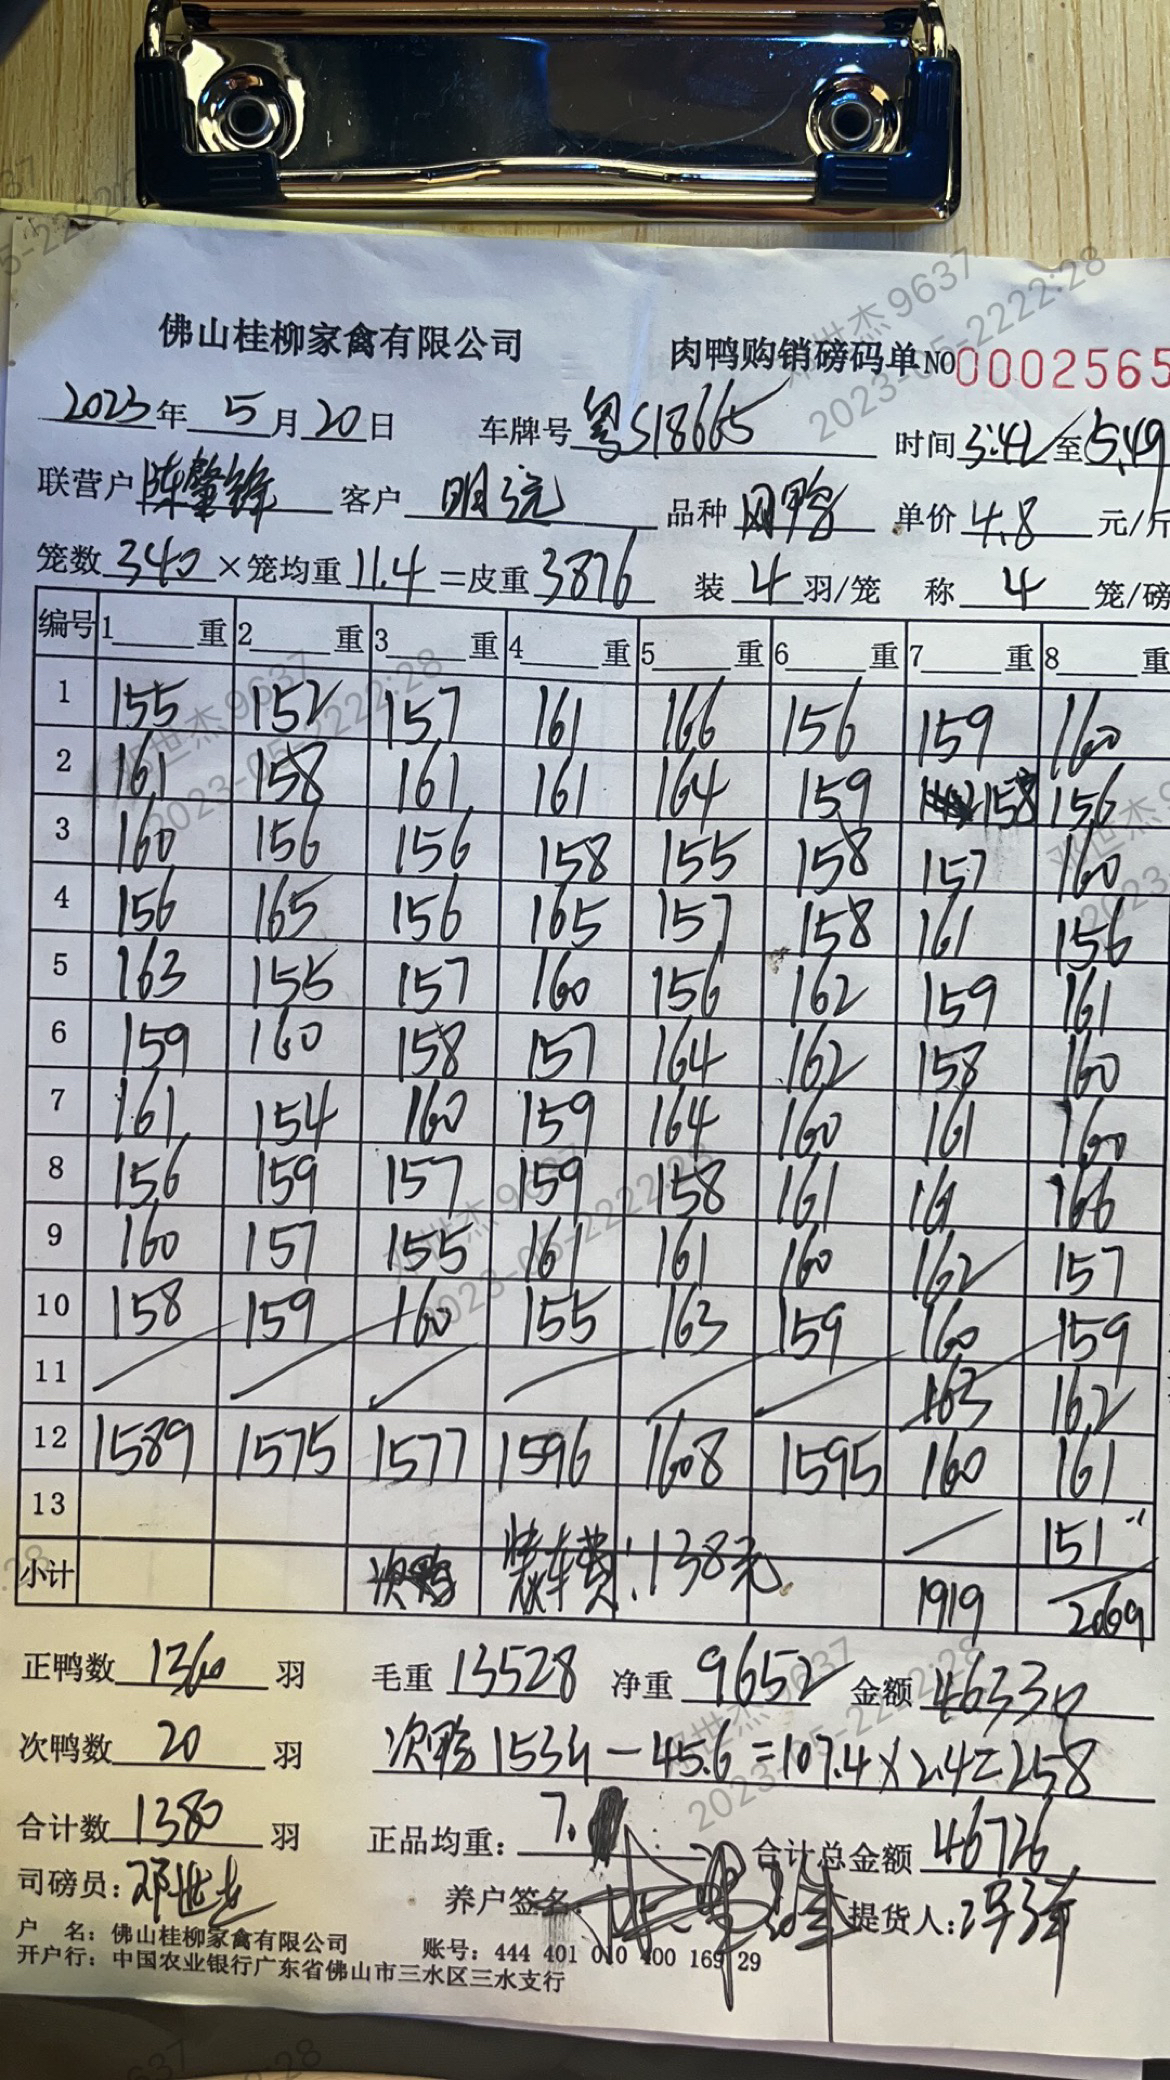 佛山桂柳家禽有限公司 肉鸭购销磅码单 NO 0002565
2023年 5月 20日 车牌号 粤S18665 时间 3:42 至 5:49
联营户 陈肇锋 客户 明 品种 网鸭 单价 4.8 元/斤
笼数 340 ×笼均重 11.4 =皮重 3876 装 4 羽/笼 称 4 笼/磅
编号 1 重 2 重 3 重 4 重 5 重 6 重 7 重 8 重
1 155 152 157 161 166 156 159 160
2 161 158 161 161 164 159 158 156
3 160 156 156 158 155 158 157 160
4 156 165 156 165 157 158 161 156
5 163 155 157 160 156 162 159 161
6 159 160 158 157 164 162 158 160
7 161 154 160 159 164 160 161 160
8 156 159 157 159 158 161 161 166
9 160 157 155 161 161 160 162 157
10 158 159 160 155 163 159 160 159
11 163 162
12 1589 1575 1577 1596 1608 1595 160 161
13 151
小计 装车费:138元 1919 2069
正鸭数 1360 羽 毛重 13528 净重 9652 金额 46330
次鸭数 20 羽 次鸭 153斤 - 45.6 = 107.4 × 2.4 = 258
合计数 1380 羽 正品均重: 7. 合计总金额 46726
司磅员: 邓世杰 养户签名: 提货人:
户 名: 佛山桂柳家禽有限公司 账号: 444 401 010 400 169 29
开户行: 中国农业银行广东省佛山市三水区三水支行
邓世杰 9637
2023-05-2222:28